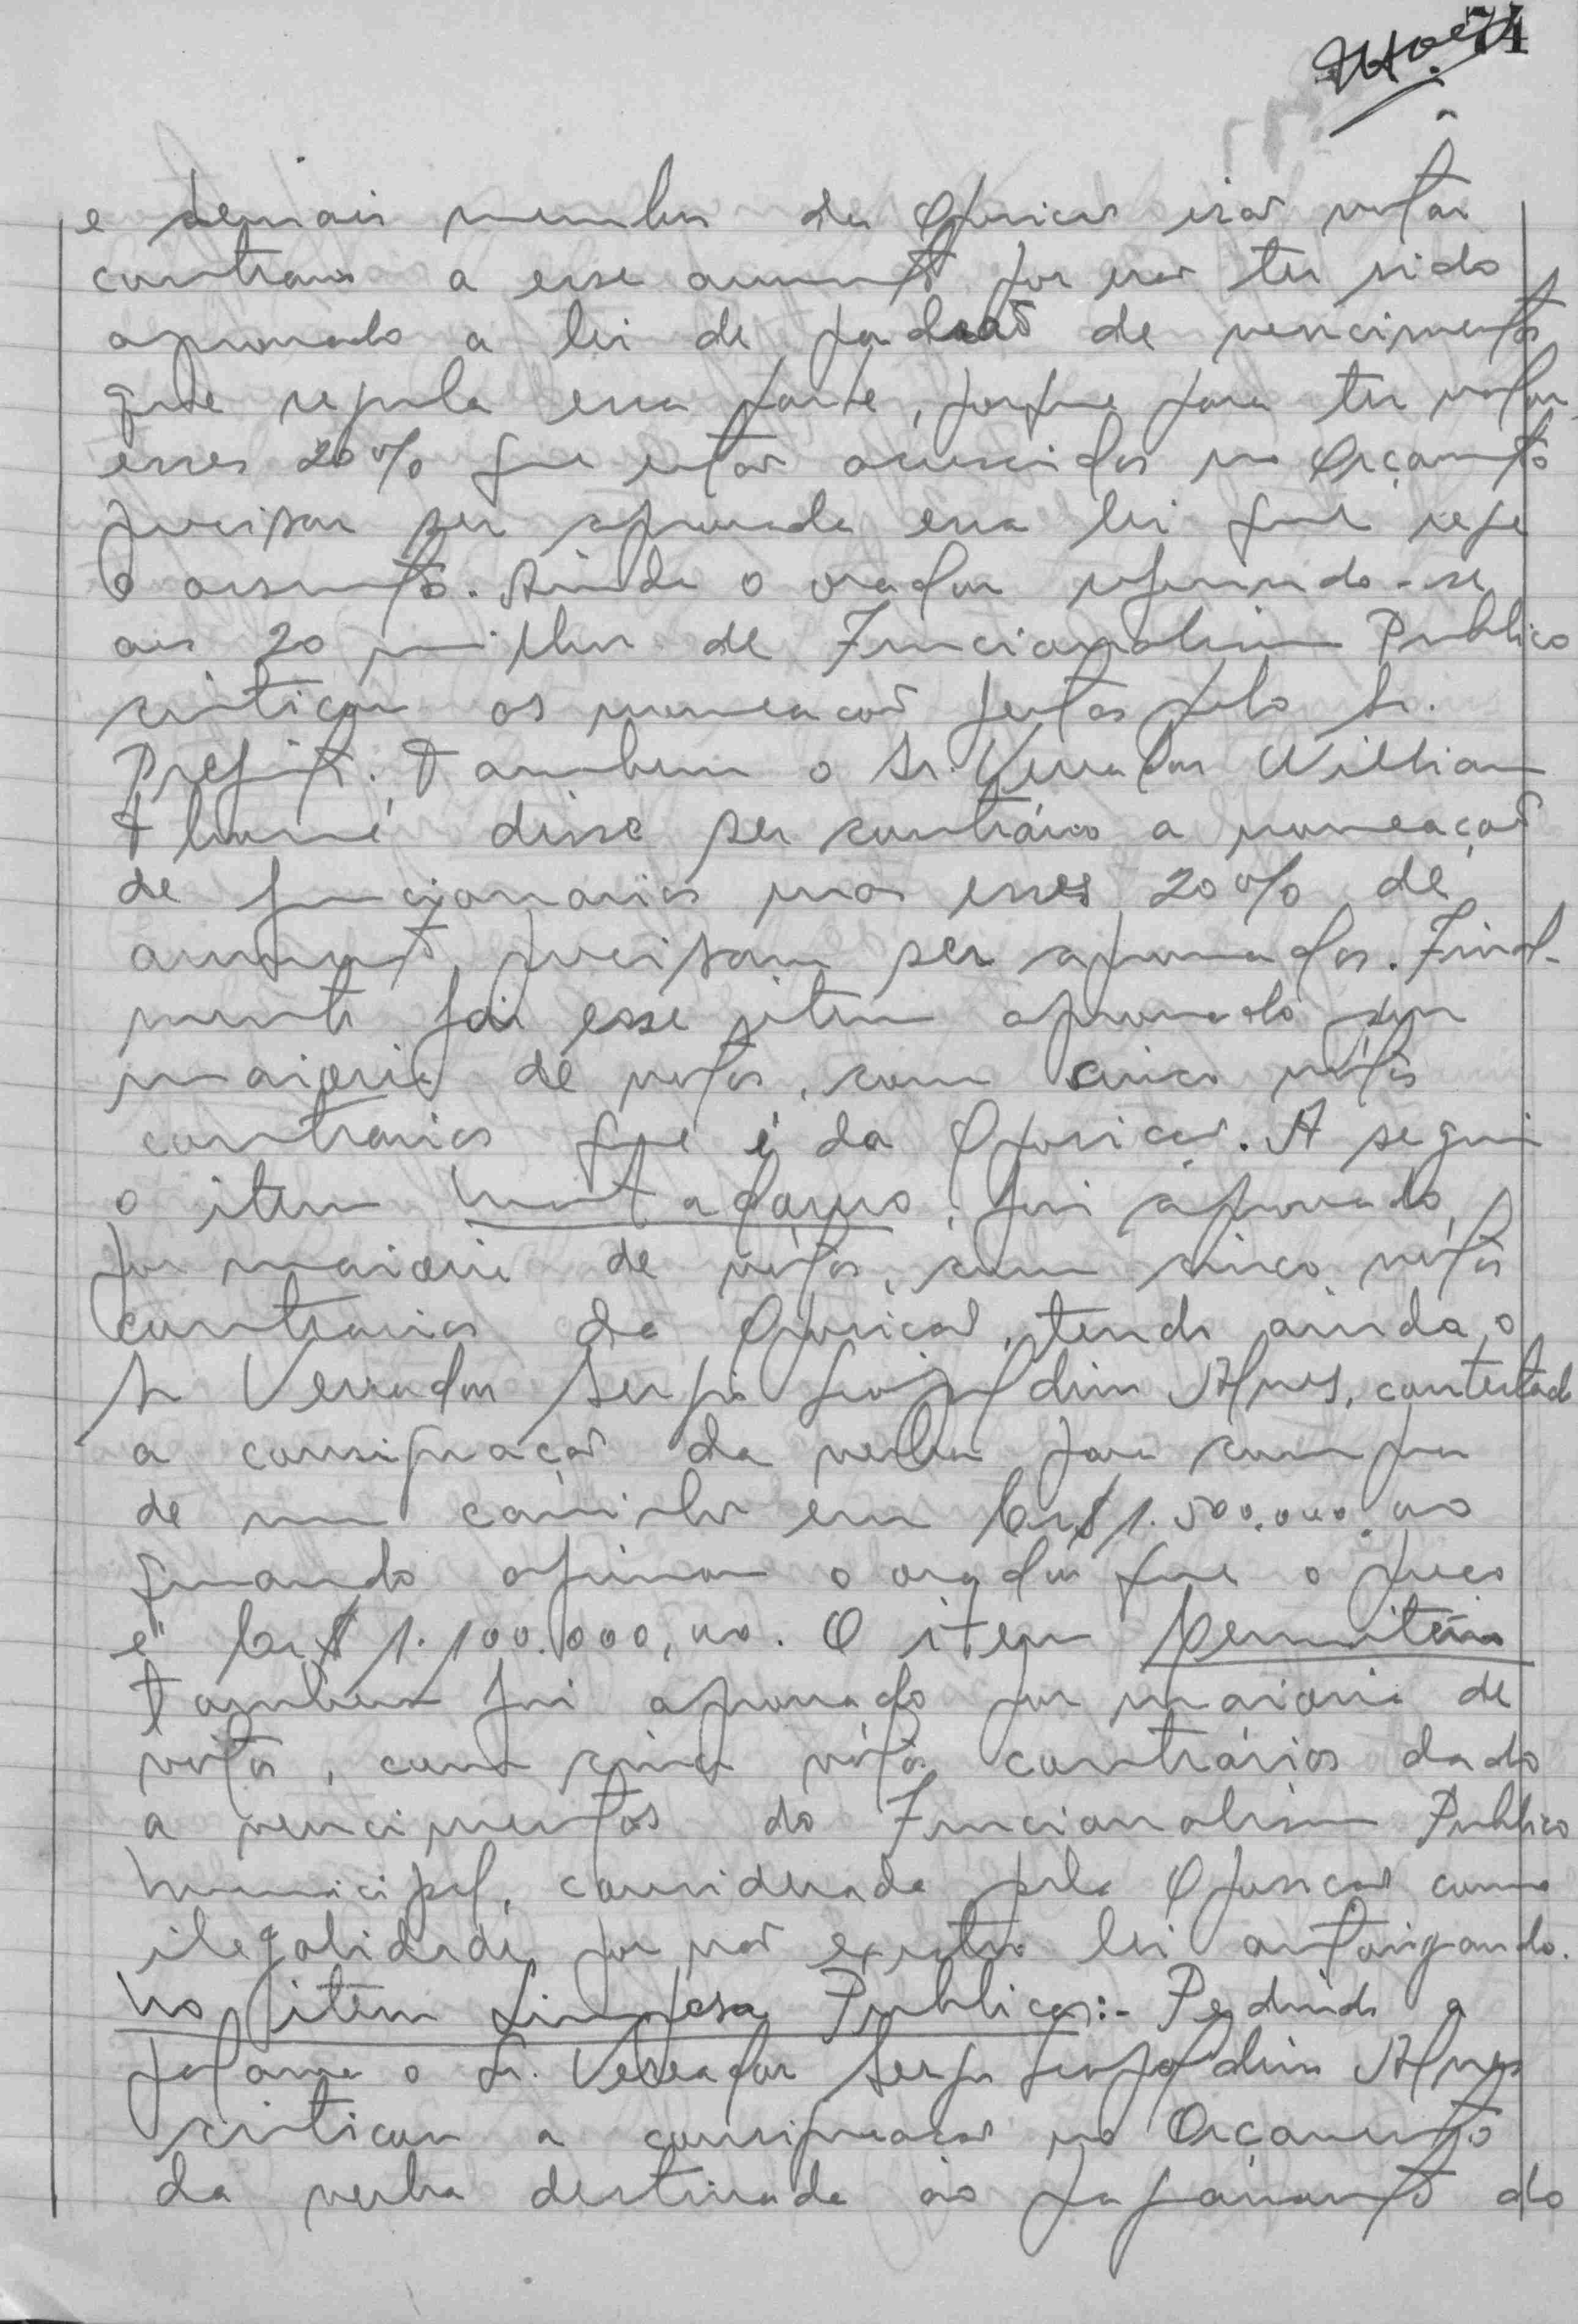 74
e demais membros da Oposicao irao votar
contrario a esse aumento por nao ter sido
aprovado a lei de padrao de vencimentos
que regula essa parte, porque para ter valor
esses 20% que estao acrescidos no Orçamento
precisar ser aprovada essa lei que rege
o assunto. Ainda o orador referindo-se
aos 20 milhoes de Funcionalismo Publico
criticou as nomeacoes feitas pelo Sr.
Prefeito. Tambem o Sr. Vereador Willian
Thomé disse ser contrário a nomeaçao
de funcionarios mas esses 20% de
aumento precisam ser aprovados. Final-
mente foi esse item aprovado por
maioria de votos, com cinco votos
contrarios que é da Oposicao. A seguir
o item Matadouro, foi aprovado,
por maioria de vótos, com cinco vótos
contrarios da Oposicao, tendo ainda o
Sr Vereador Sergio Leopoldino Alves, contestado
a consignaçao da verba para compra
de um caminhao em Cr$ 1.500.000,00
quando afirmou o orador que o preço
é Cr$ 1.100.000,00. O item Cemitério
tambem foi aprovado por maioria de
votos, com cinco vótos contrários dado
a vencimentos do Funcionalismo Publico
Municipal, considerada pela Oposicao como
ilegalidade, por nao existir lei autorizando.
No item Limpesa Publica:- Pedindo a
palavra o Sr. Vereador Sergio Leopoldino Alves
criticou a consignacao no Orçamento
da verba destinada ao pagamento do